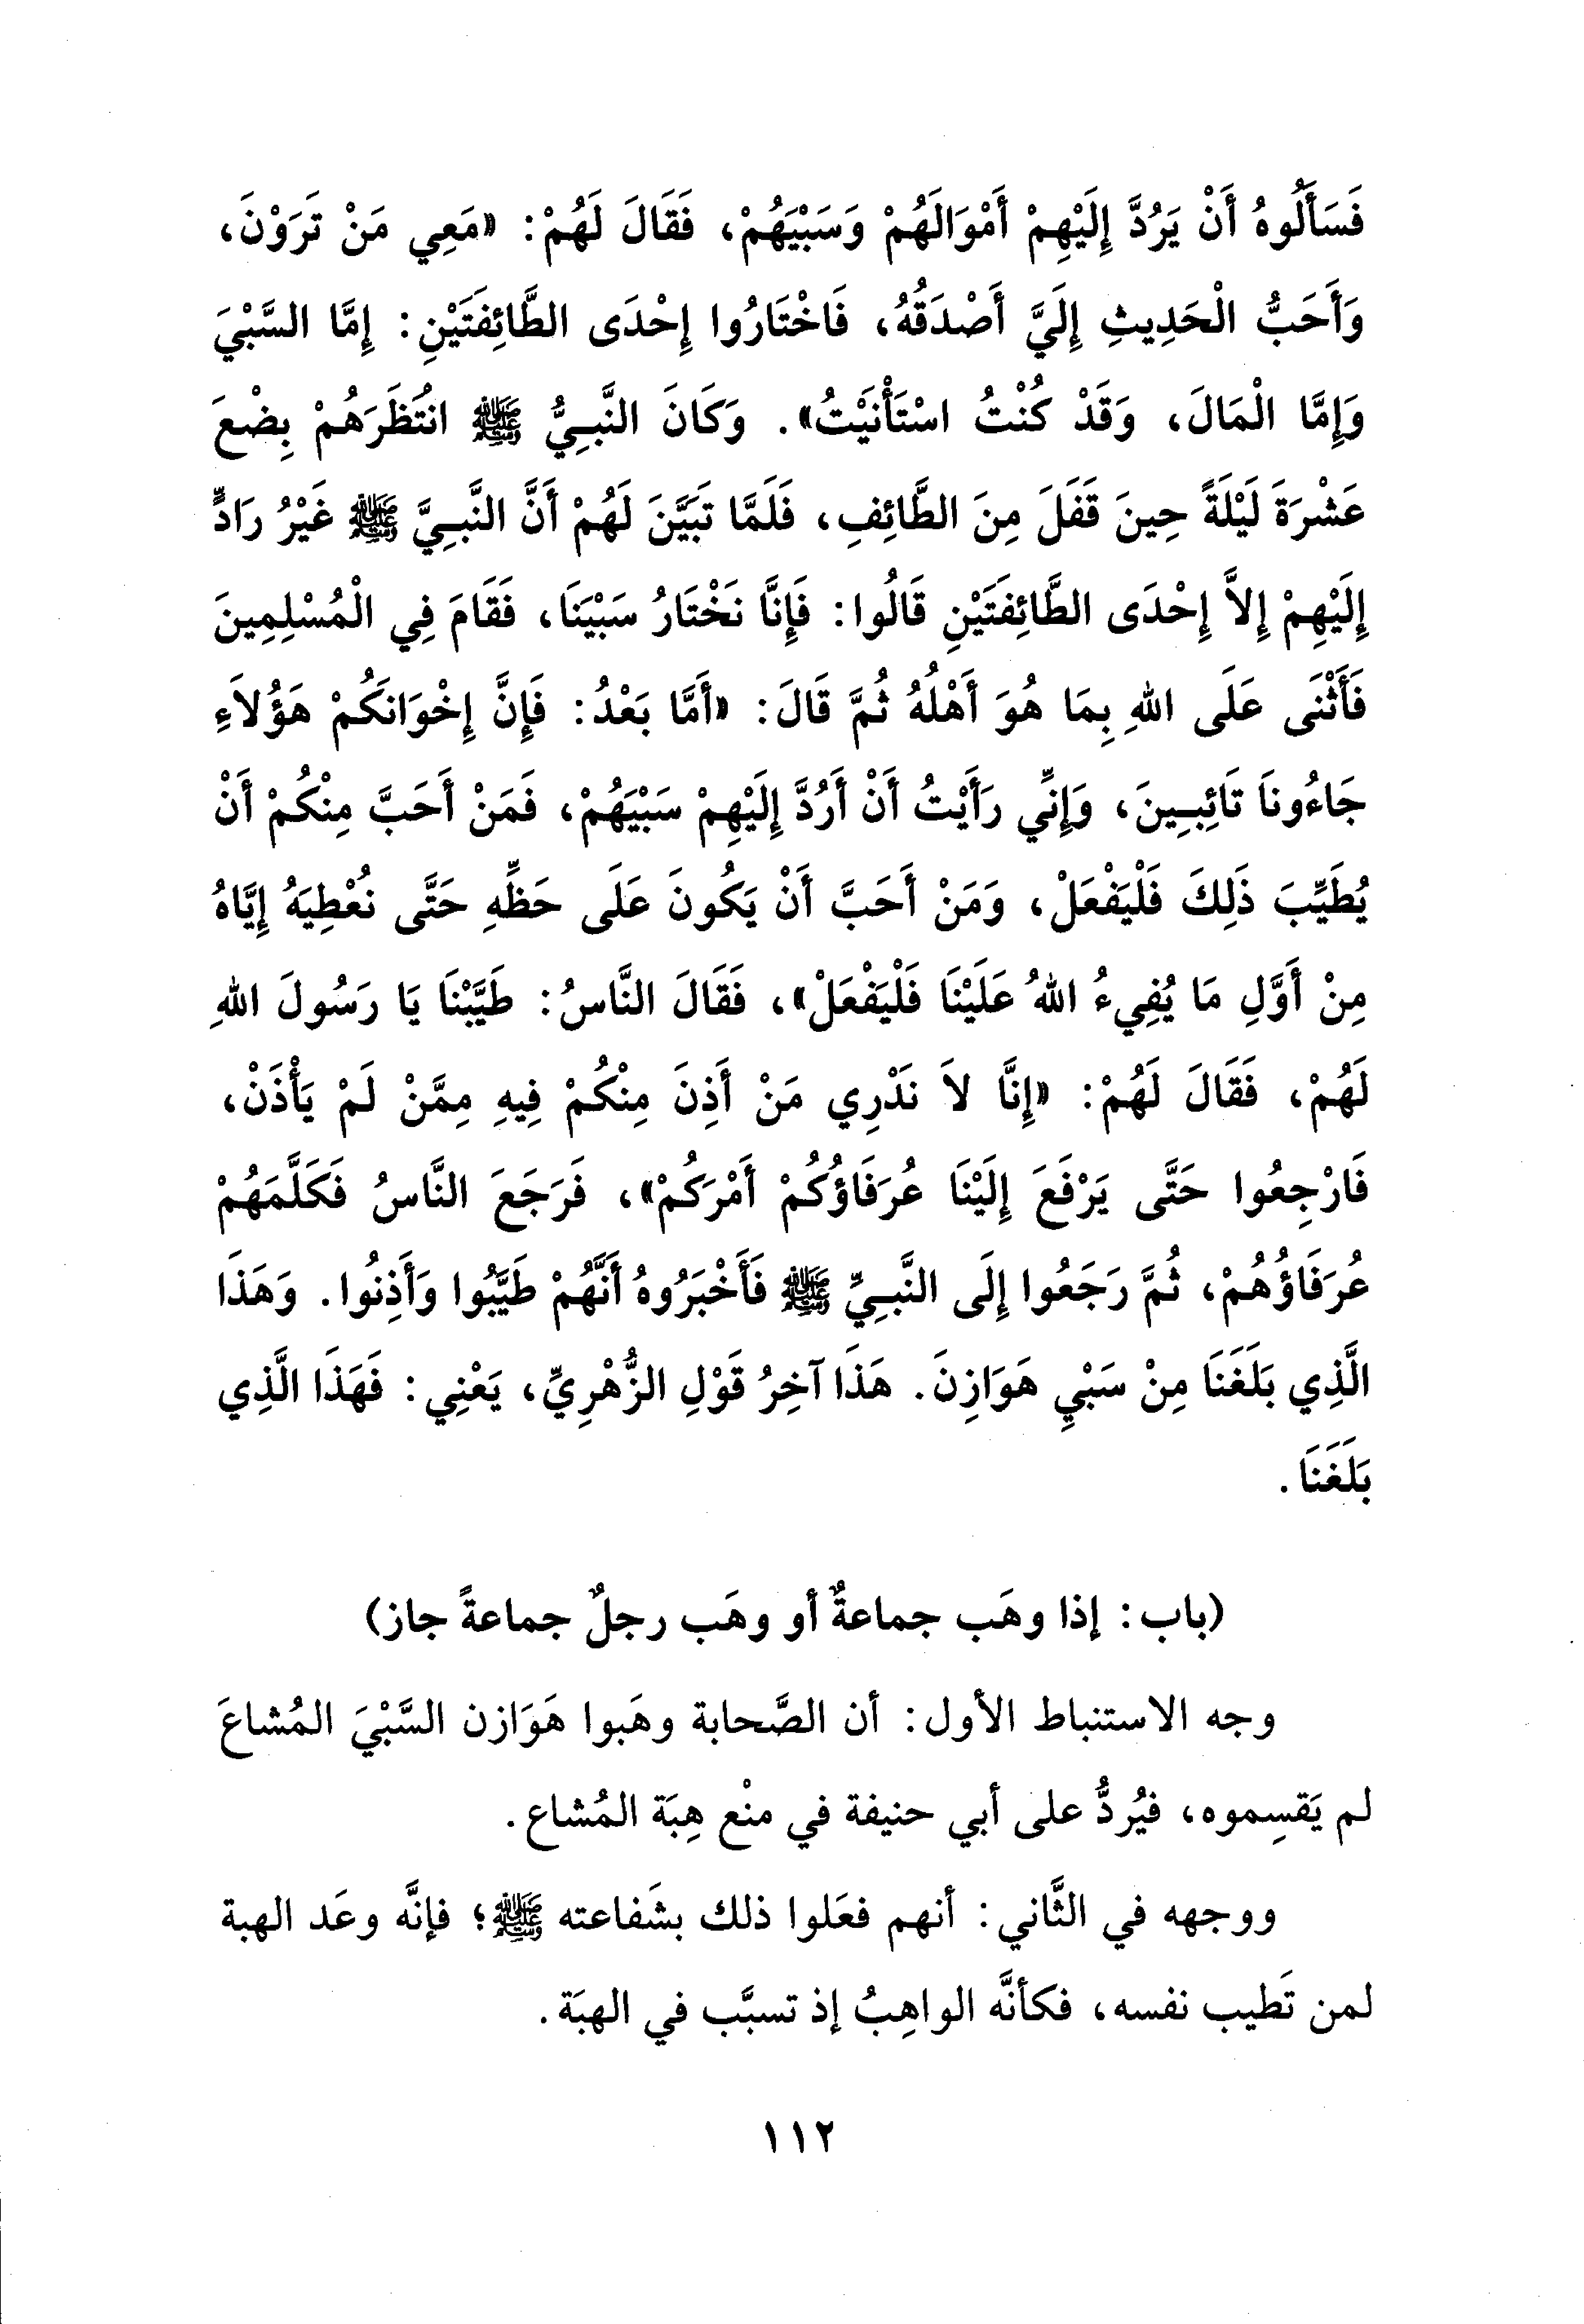 فَسَأَلُوهُ أَنْ يَرُدَّ إِلَيْهِمْ أَمْوَالَهُمْ وَسَبْيَهُمْ، فَقَالَ لَهُمْ: «مَعِي مَنْ تَرَوْنَ،
وَأَحَبُّ الْحَدِيثِ إِلَيَّ أَصْدَقُهُ، فَاخْتَارُوا إِحْدَى الطَّائِفَتَيْنِ: إِمَّا السَّبْيَ
وَإِمَّا الْمَالَ، وَقَدْ كُنْتُ اسْتَأْنَيْتُ». وَكَانَ النَّبِيُّ ﷺ انْتَظَرَهُمْ بِضْعَ
عَشْرَةَ لَيْلَةً حِينَ قَفَلَ مِنَ الطَّائِفِ، فَلَمَّا تَبَيَّنَ لَهُمْ أَنَّ النَّبِيَّ ﷺ غَيْرُ رَادٍّ
إِلَيْهِمْ إِلاَّ إِحْدَى الطَّائِفَتَيْنِ قَالُوا: فَإِنَّا نَخْتَارُ سَبْيَنَا، فَقَامَ فِي الْمُسْلِمِينَ
فَأَثْنَى عَلَى اللهِ بِمَا هُوَ أَهْلُهُ ثُمَّ قَالَ: «أَمَّا بَعْدُ: فَإِنَّ إِخْوَانَكُمْ هَؤُلاَءِ
جَاءُونَا تَائِبِينَ، وَإِنِّي رَأَيْتُ أَنْ أَرُدَّ إِلَيْهِمْ سَبْيَهُمْ، فَمَنْ أَحَبَّ مِنْكُمْ أَنْ
يُطَيِّبَ ذَلِكَ فَلْيَفْعَلْ، وَمَنْ أَحَبَّ أَنْ يَكُونَ عَلَى حَظِّهِ حَتَّى نُعْطِيَهُ إِيَّاهُ
مِنْ أَوَّلِ مَا يُفِيءُ اللهُ عَلَيْنَا فَلْيَفْعَلْ»، فَقَالَ النَّاسُ: طَيَّبْنَا يَا رَسُولَ اللهِ
لَهُمْ، فَقَالَ لَهُمْ: «إِنَّا لاَ نَدْرِي مَنْ أَذِنَ مِنْكُمْ فِيهِ مِمَّنْ لَمْ يَأْذَنْ،
فَارْجِعُوا حَتَّى يَرْفَعَ إِلَيْنَا عُرَفَاؤُكُمْ أَمْرَكُمْ»، فَرَجَعَ النَّاسُ فَكَلَّمَهُمْ
عُرَفَاؤُهُمْ، ثُمَّ رَجَعُوا إِلَى النَّبِيِّ ﷺ فَأَخْبَرُوهُ أَنَّهُمْ طَيَّبُوا وَأَذِنُوا. وَهَذَا
الَّذِي بَلَغَنَا مِنْ سَبْيِ هَوَازِنَ. هَذَا آخِرُ قَوْلِ الزُّهْرِيِّ، يَعْنِي: فَهَذَا الَّذِي
بَلَغَنَا.
(باب: إذا وهَب جماعةٌ أو وهَب رجلٌ جماعةً جاز)
وجه الاستنباط الأول: أن الصَّحابة وهَبوا هَوَازن السَّبْيَ المُشاعَ
لم يَقسِموه، فيُردُّ على أبي حنيفة في منْع هِبَة المُشاع.
ووجهه في الثَّاني: أنهم فعَلوا ذلك بشَفاعته ﷺ؛ فإنَّه وعَد الهبة
لمن تَطيب نفسه، فكأنَّه الواهِبُ إذ تسبَّب في الهبَة.
١١٢